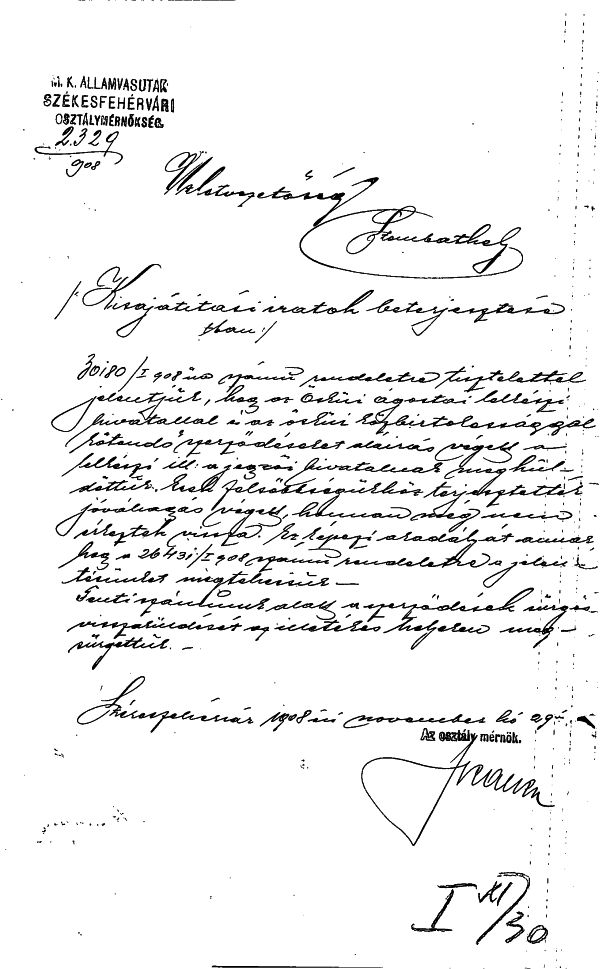 M. K. ÁLLAMVASUTAK
SZÉKESFEHÉRVÁRI
OSZTÁLYMÉRNÖKSÉG.
2329
908
Üzletvezetőség
Szombathely
/: Kisajátítási iratok beterjesztése
tban :/
30180/I 908 sz számú rendeletre tisztelettel
jelentjük, hogy az Öskü ágostai lelkészi
hivatallal és az öskü közbirtokossággal
kötendő szerződéseket aláírás végett a
lelkészi ill. a jegyzői hivatalnak megkül-
döttük. Ezek felsőbbségükhöz terjesztettek
jóváhagyás végett, honnan még nem
érkeztek vissza. Ez képezi akadályát annak
hogy a 26431/I 908 számú rendeletre a jelen-
tésünket megtehessük –
Fenti számunk alatt a szerződések sürgős
visszaküldését az illetékes helyeken meg-
sürgettük. –
Székesfehérvár 1908 évi november hó 29-
Az osztálymérnök.
I XI/30